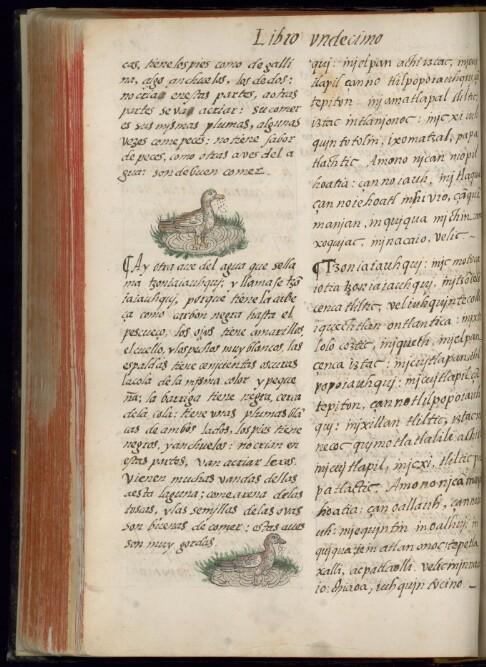 Libro vndecimo
cas, tiene los pies como de galli
na, algo anchuelos, los dedos:
no cria en estas partes, a otras
partes se va a criar: su comer
es sus mismas plumas, algunas
vezes come peces: no tiene sabor
de peces, como otras aves del a
gua: son de buen comer.
¶Ay otra aue del agua que se lla
ma tzoniaiauhquj, y llamase tzō
iaiauhquj, porque tiene la cabe
ça como carbón negra hasta el
pescueço, los ojos tiene amarillos,
el cuello, y los pechos muy blancos, las
espaldas tiene cenjcientas oscuras
la cola de la misma color y peque
ña; la barriga tiene negra, cerca
de la cola: tiene vnas plumas blā
cas de ambos lados, los pies tiene
negros, y anchuelos: no crian en
estas partes, van a criar lexos.
Vienen muchas vandas dellas
a esta laguna; come arena de las
tosas, y las semillas de las ovas
son buenas de comer: estas aues
son muy gordas.
quj: injelpan achi iztac,
tlapil çan no tlilpopoiauhquj
tepiton: mjamatlapal tliltic
iztac intlanjonoc: mjcxi iuh
quin totolin, ixomatzal, papa
tlachtic. Amono njcan mopil
hoatia: çan no iauh,
çan noiehoatl injhujvio,
manjan, in quiqua mjchin,
xoqujac, injnacaio, velic
¶Tzoniaiauhquj: injc motoca
iotia tzoniaiauhquj,
cenca tliltic, veliuhqujn tecolli
iquechtlan ontlantica:
lolo coztic, injquech, injelpan
cenca iztac: injcujtlapan, tlil
popoiauhquj: injcujtlapil çā
tepiton, çan no tlilpopoiauh
quj: injxillan tliltic, iztac in
necoc qujmotlatlalili
injcujtlapil, injcxi, tliltic,
patlactic. Amono njcan
hoatia: çan oallauh,
uh: mjequjntin in oalhuj,
qujqua: iem atlan onoc: tepetla
xalli, acpatlaolli. velic
io: chiaoa, iuhqujn tocino.